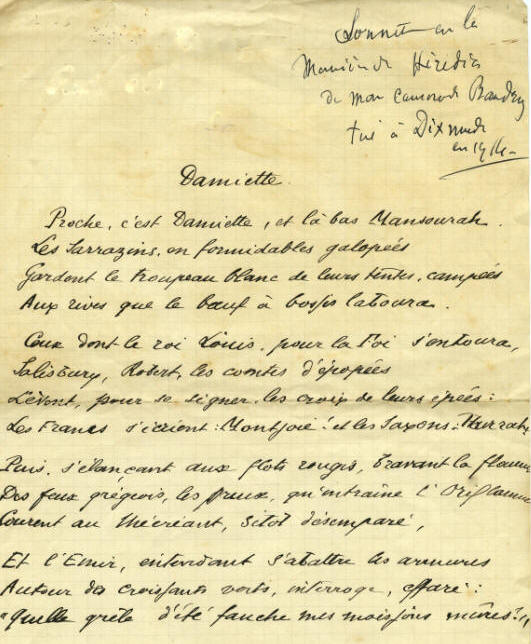 Sonnet en la
Manière de Hérédia
de mon camarade Baudry
tué à Dixmude
en 1914
Damiette.
Proche, c'est Damiette, et là bas Mansourah.
Les Sarrazins, en formidables galopées
Gardent le troupeau blanc de leurs tentes, campées
Aux rives que le bœuf à bosses laboura.
Ceux dont le roi Louis, pour la Foi s'entoura,
Salisbury, Robert, les comtes d'épopées
Lèvent, pour se signer, les croix de leurs épées :
Les Francs s'écrient : Montjoie ! et les Saxons : Hurrah
Puis, s'élançant aux flots rougis, bravant la flamme
Des feux grégeois, les preux, qu'entraîne l'Oriflamme
Courent au Mécréant, sitôt désemparé,
Et l'Emir, entendant s'abattre les armures
Autour des croissants verts, interroge, effaré :
"Quelle grêle d'été fauche mes moissons mûres ?"